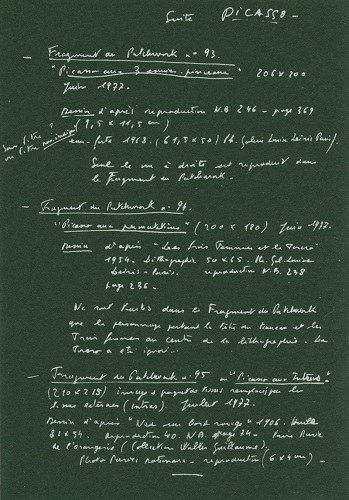 Suite PICASSO -
- Fragment du Patchwork n° 93.
"Picasso aux 3 pinceaux" 206 x 200
Juin 1977.
Dessin d'après reproduction N.B 246 - page 369
(9,5 x 11,5 cm)
eau-forte 1968. (61,5 x 50) Ph. Galerie Louise Leiris Paris).
Sous titre ?
ou titre
Seul le nu à droite est reproduit dans
le Fragment du Patchwork -
- Fragment du Patchwork n° 94.
"Picasso aux permutations" (200 x 180) Juin 1977.
Dessin d'après "Les Trois Femmes et le Torero"
1954. Lithographie 50 x 65. Ph. Gal. Louise
Leiris - Paris. reproduction N.B. 238
page 236 -
Ne sont traités dans le Fragment du Patchwork
que le personnage portant la tête du taureau et les
Trois femmes au centre de la lithographie. Le
Torero a été ignoré -
- Fragment du Patchwork n° 95 ou "Picasso aux
(210 x 215) image à paquets de tissus remplacés par les
Juillet 1977.
Dessin d'après "Nu sur fond rouge" 1906. Huile
81 x 54. reproduction 40. N.B. page 24 - Paris Musée
de l'orangerie (Collection Walter Guillaume).
Photo Musées nationaux - reproduction (6 x 4 cm) -